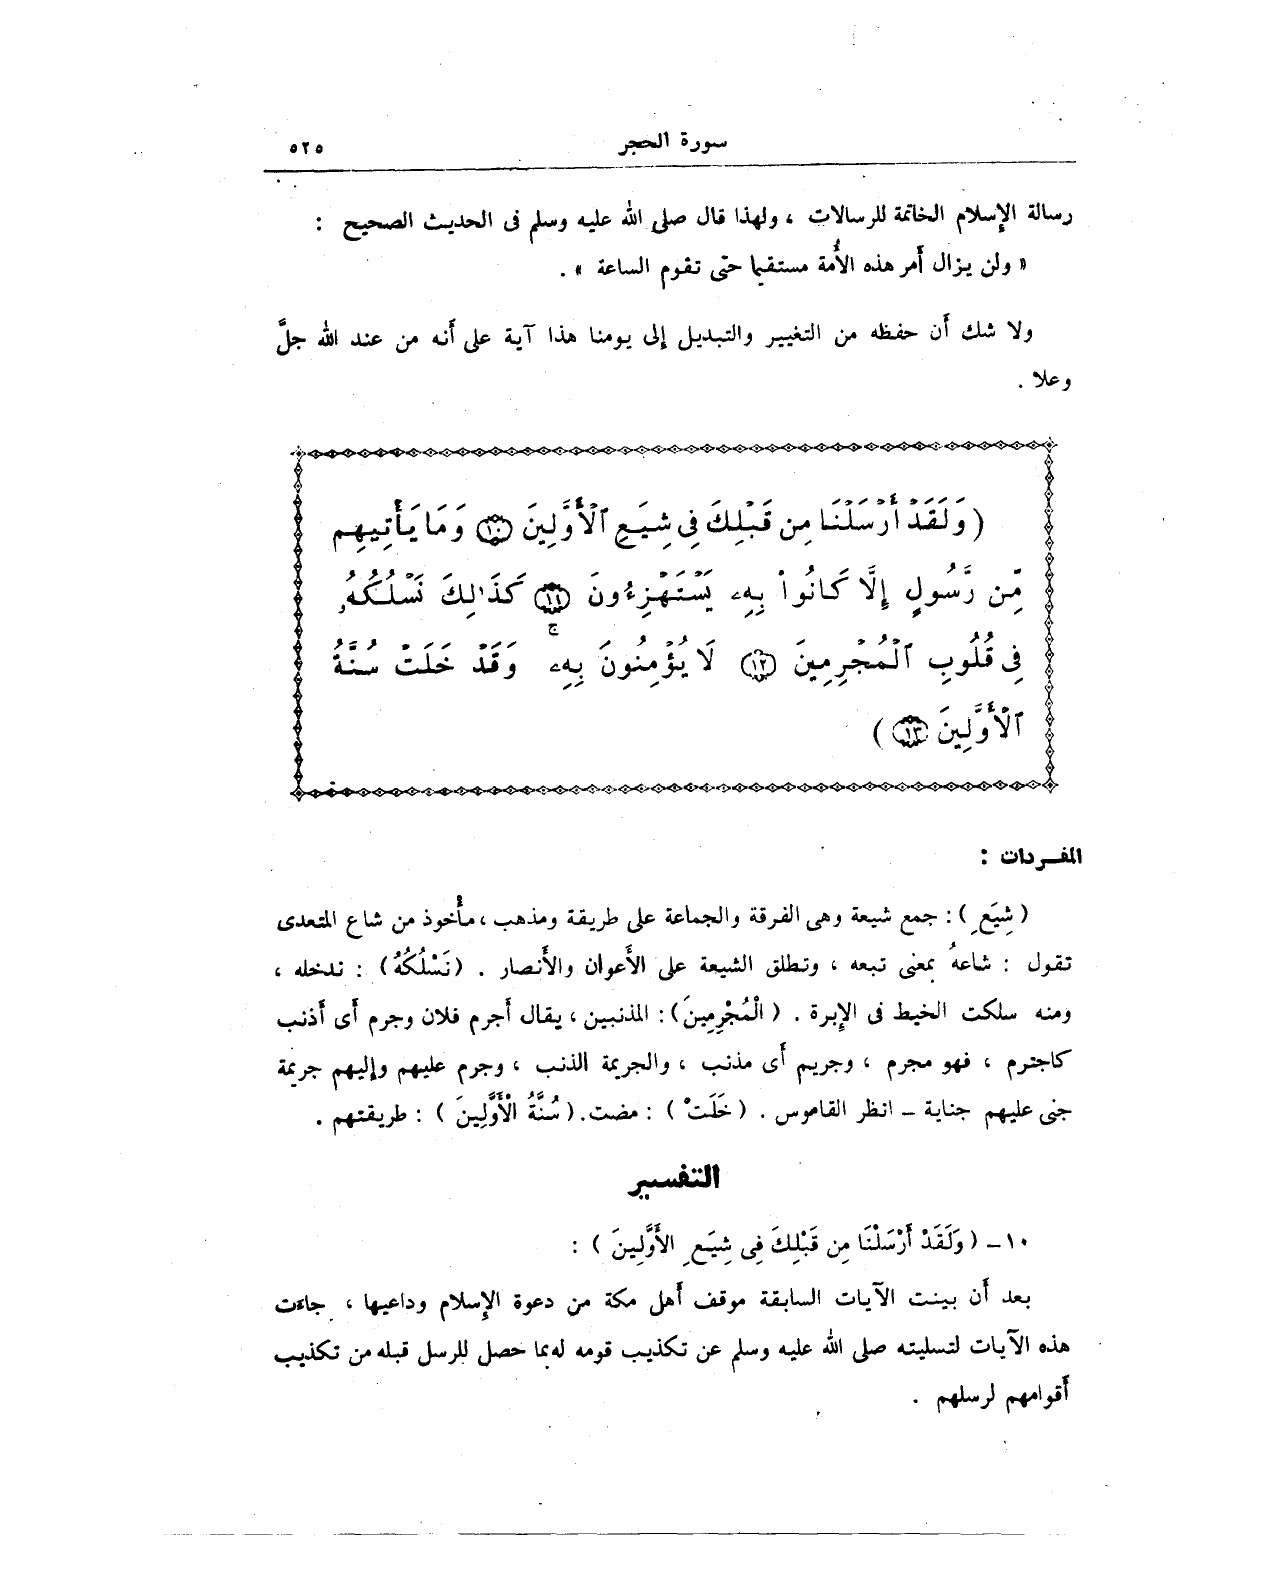 سورة الحجر ٥٢٥
رسالة الإسلام الخاتمة للرسالات ، ولهذا قال صلى الله عليه وسلم فى الحديث الصحيح :
« ولن يزال أمر هذه الأُمة مستقيما حتى تقوم الساعة » .
ولا شك أن حفظه من التغيير والتبديل إلى يومنا هذا آية على أنه من عند الله جلَّ
وعلا .
(وَلَقَدْ أَرْسَلْنَا مِن قَبْلِكَ فِى شِيَعِ ٱلْأَوَّلِينَ ١٠ وَمَا يَأْتِيهِم
مِّن رَّسُولٍ إِلَّا كَانُوا۟ بِهِۦ يَسْتَهْزِءُونَ ١١ كَذَٰلِكَ نَسْلُكُهُۥ
فِى قُلُوبِ ٱلْمُجْرِمِينَ ١٢ لَا يُؤْمِنُونَ بِهِۦ ۖ وَقَدْ خَلَتْ سُنَّةُ
ٱلْأَوَّلِينَ ١٣)
المفـردات :
( شِيَعِ ) : جمع شيعة وهى الفرقة والجماعة على طريقة ومذهب ، مأْخوذ من شاع المتعدى
تقول : شاعهُ بمعنى تبعه ، وتطلق الشيعة على الأَعوان والأَنصار . (نَسْلُكُهُ) : ندخله ،
ومنه سلكت الخيط فى الإبرة . ( الْمُجْرِمِينَ) : المذنبين ، يقال أجرم فلان وجرم أى أذنب
كاجترم ، فهو مجرم ، وجريم أى مذنب ، والجريمة الذنب ، وجرم عليهم وإليهم جريمة
جنى عليهم جناية – انظر القاموس . ( خَلَتْ ) : مضت. ( سُنَّةُ الْأَوَّلِينَ ) : طريقتهم .
التفسير
١٠ – ( وَلَقَدْ أَرْسَلْنَا مِن قَبْلِكَ فِى شِيَعِ الأَوَّلِينَ ) :
بعد أن بينت الآيات السابقة موقف أهل مكة من دعوة الإسلام وداعيها ، جاءَت
هذه الآيات لتسليته صلى الله عليه وسلم عن تكذيب قومه له بما حصل للرسل قبله من تكذيب
أقوامهم لرسلهم .